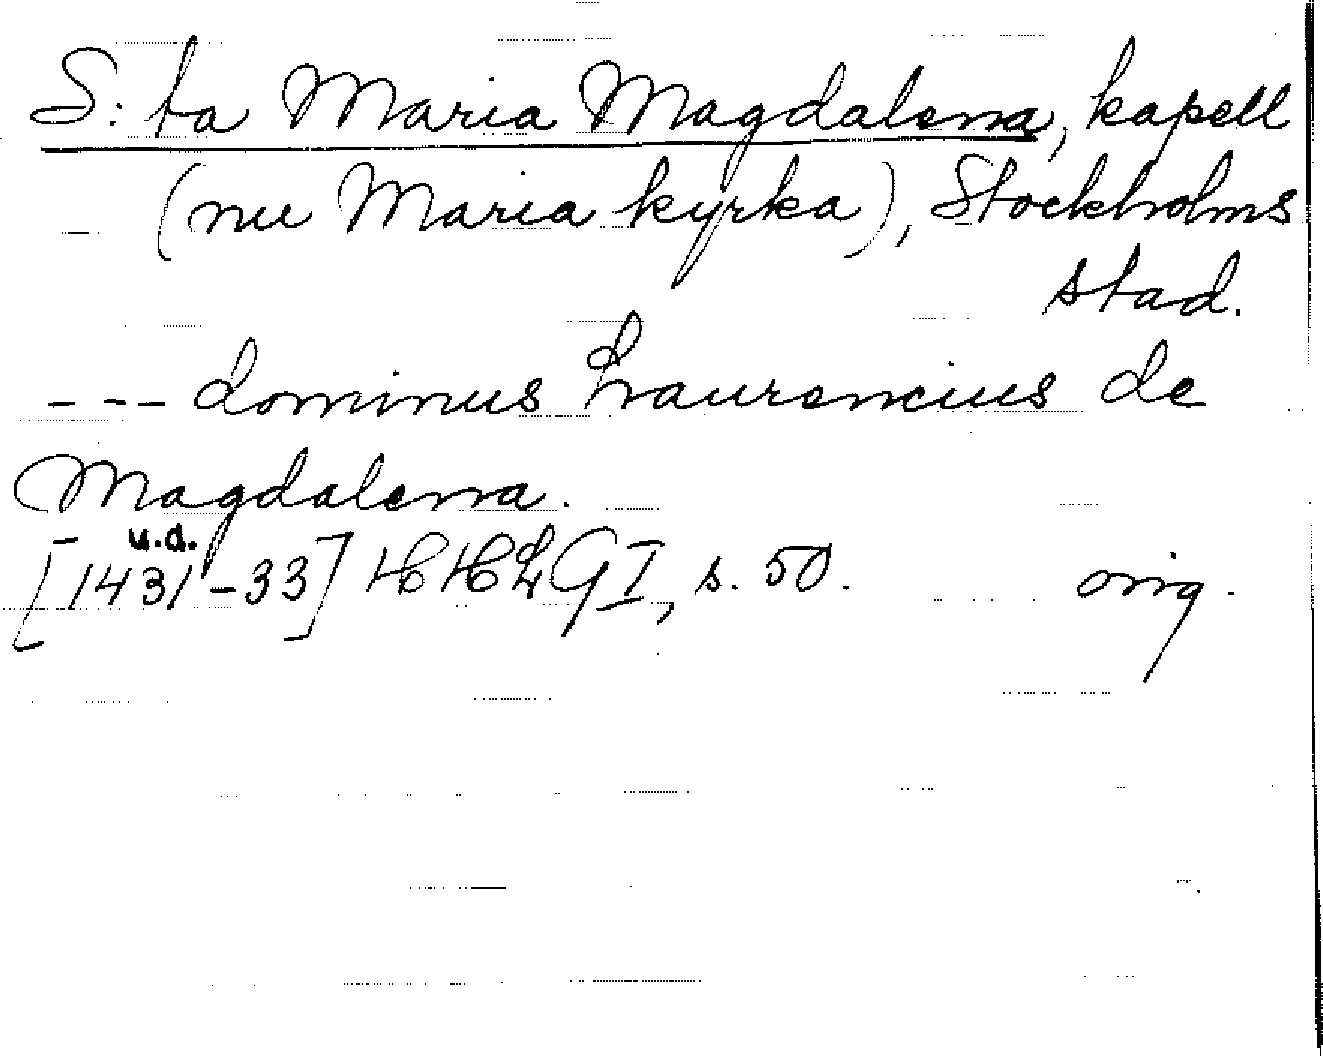 S:ta Maria Magdalena, kapell
(nu Maria kyrka), Stockholms
stad.
--- dominus Laurencius de
Magdalena.
u.d.
[1431-33] HHLG I, s. 50. orig.